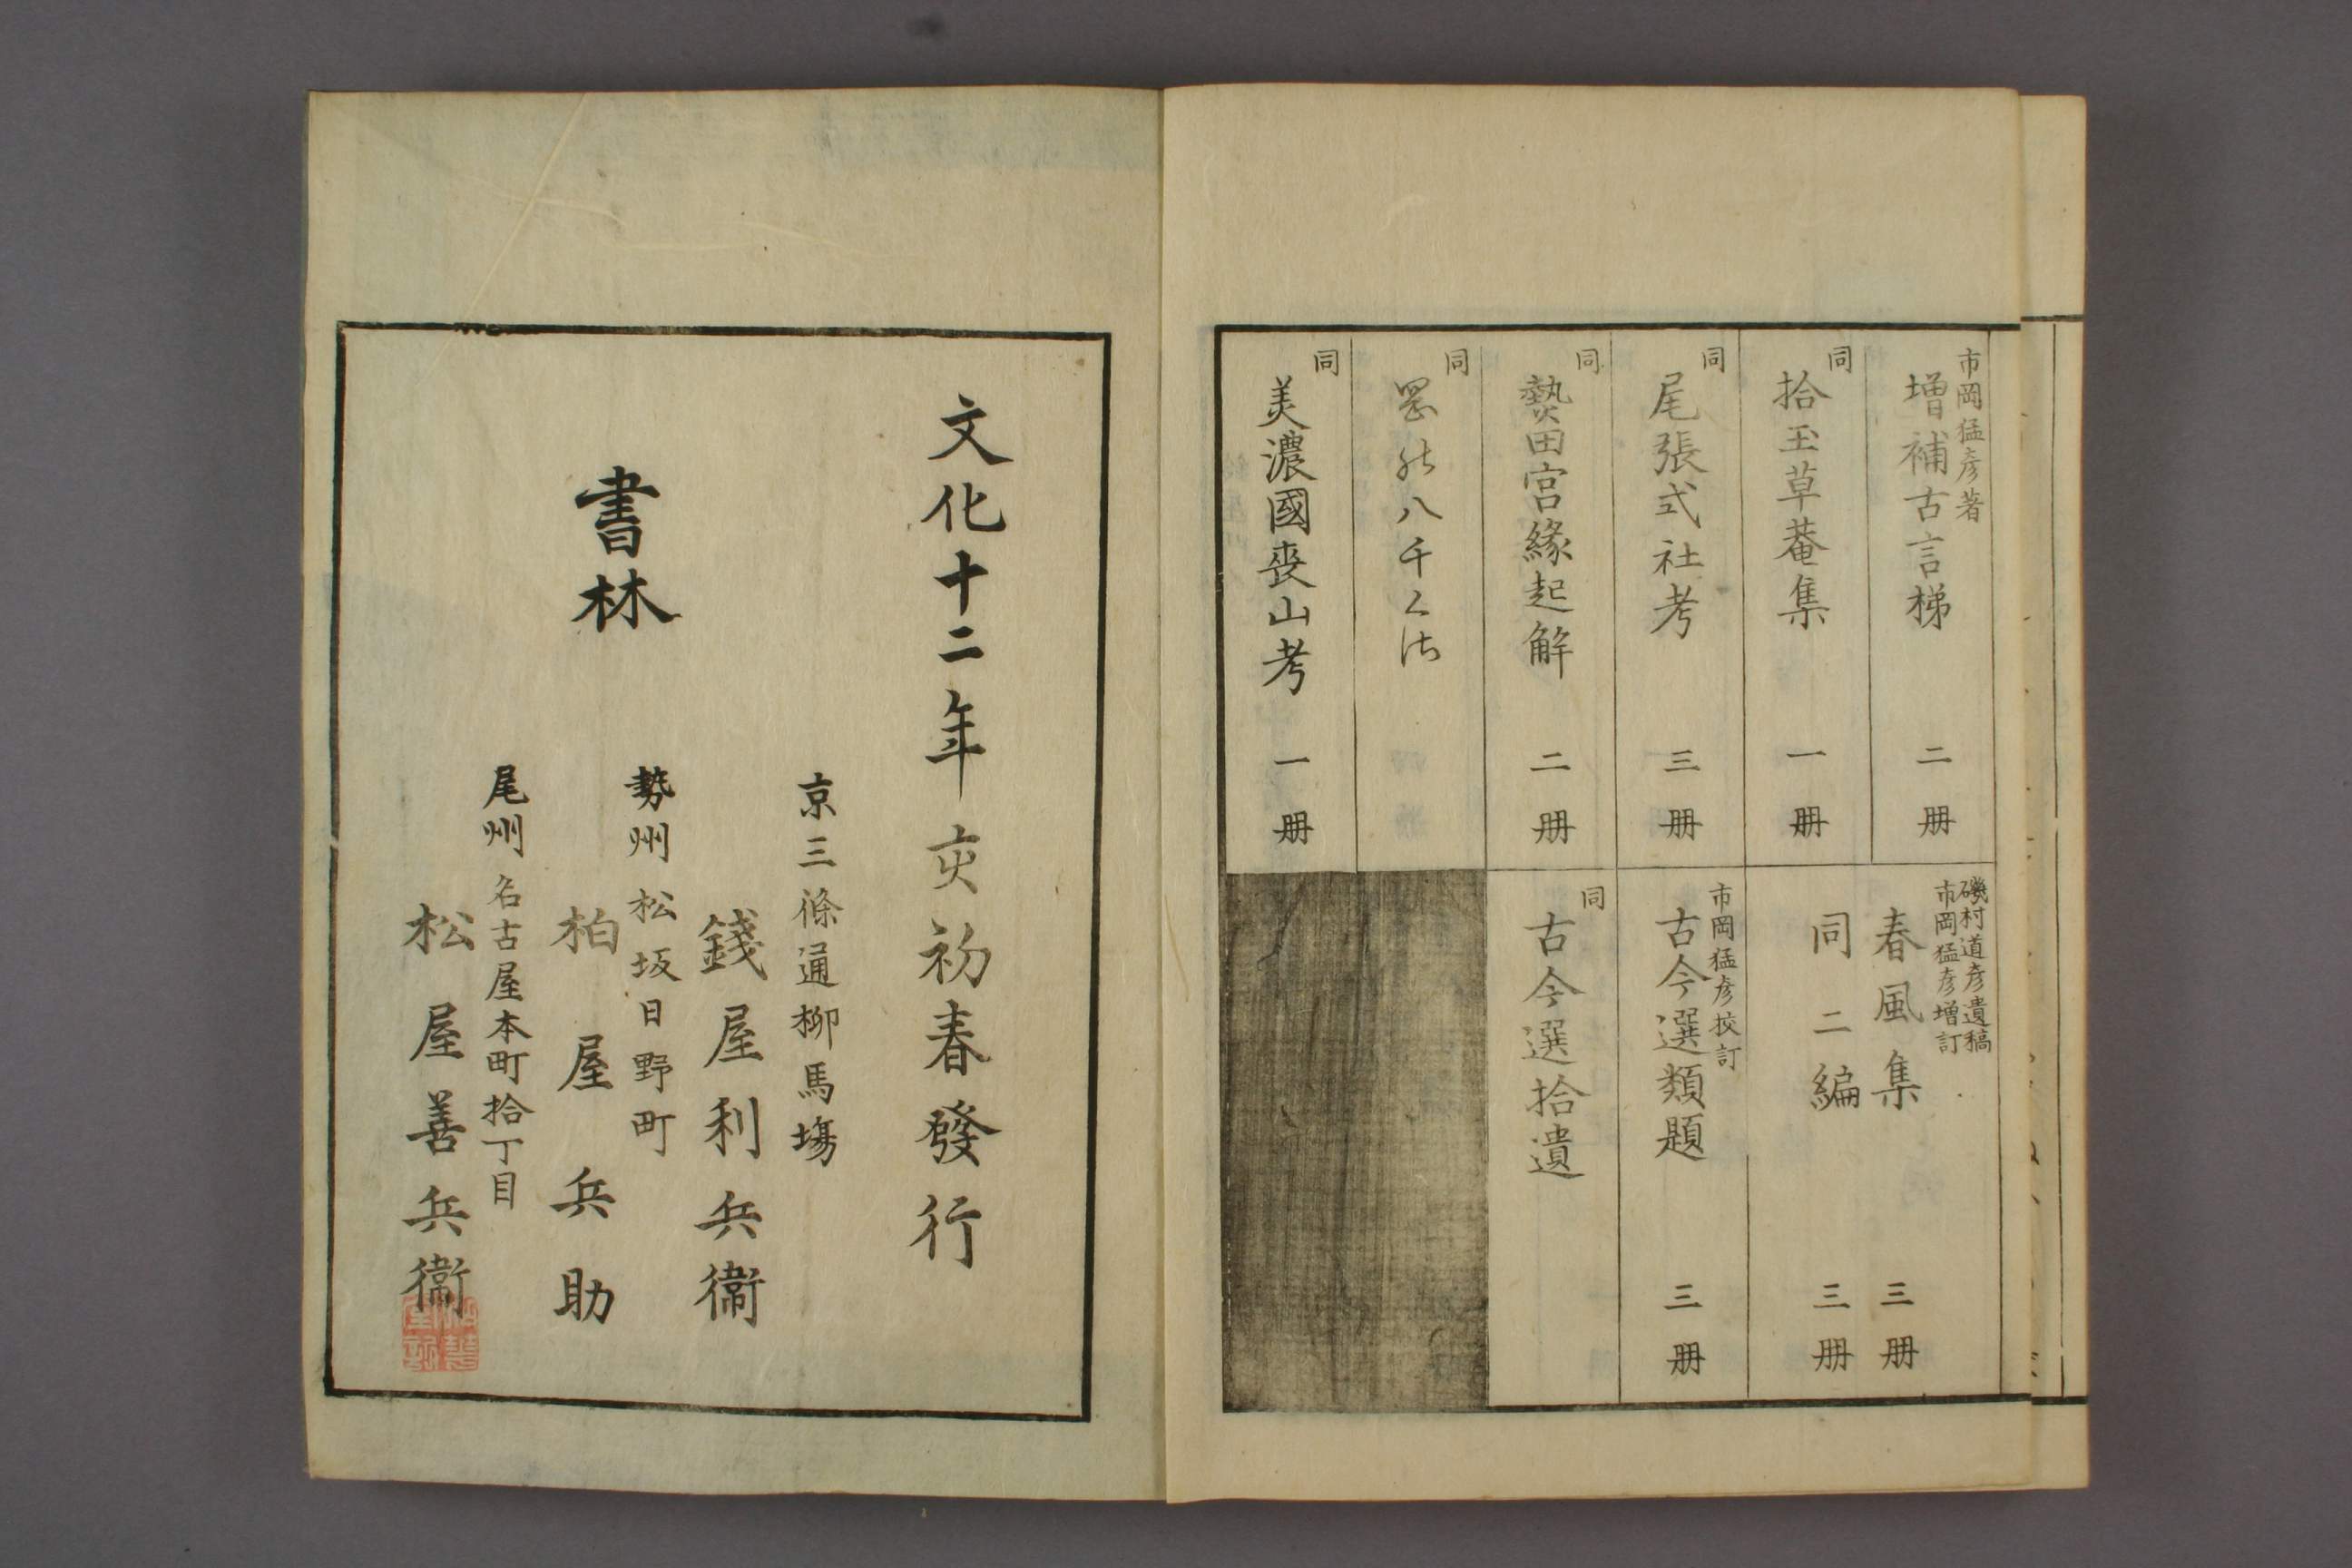 市岡猛彦著
増補古言梯 二册
同
拾玉草菴集 一册
同
尾張式社考 三册
同
熱田宮緣起解 二册
同
同
美濃國喪山考 一册
磯村道彦遺稿
市岡猛彦增訂
春風集 三册
同二編 三册
市岡猛彦挍訂
古今選類題 三册
同
古今選拾遺
文化十二年亥初春發行
京三條通柳馬塲
錢屋利兵衞
書林
勢州松坂日野町
柏屋兵助
尾州名古屋本町拾丁目
松屋善兵衞